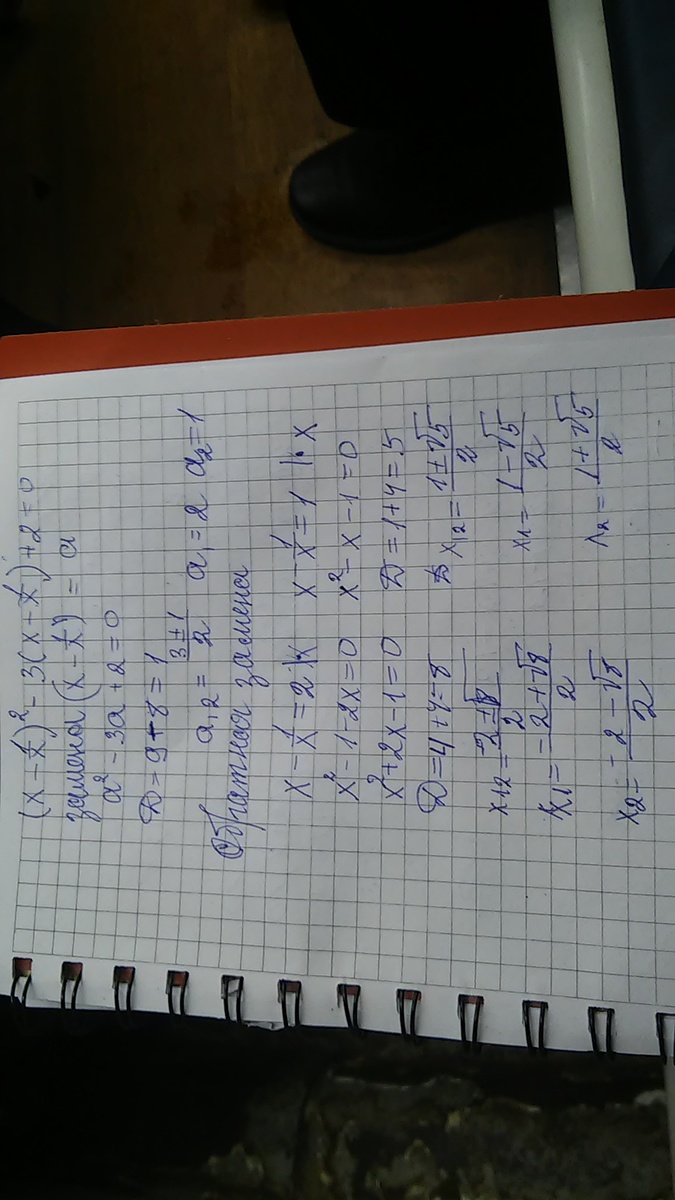 (x - 1/x)² - 3(x - 1/x) + 2 = 0
замена (x - 1/x) = a
a² - 3a + 2 = 0
D = 9 + 8 = 1
a₁,₂ = (3 ± 1)/2 a₁ = 2 a₂ = 1
Обратная замена
x - 1/x = 2 |·x x - 1/x = 1 |·x
x² - 1 - 2x = 0 x² - x - 1 = 0
x² + 2x - 1 = 0 D = 1 + 4 = 5
D = 4 + 4 = 8 x₁,₂ = (1 ± √5)/2
x₁,₂ = (-2 ± √8)/2 x₁ = (1 - √5)/2
x₁ = (-2 + √8)/2 x₂ = (1 + √5)/2
x₂ = (-2 - √8)/2